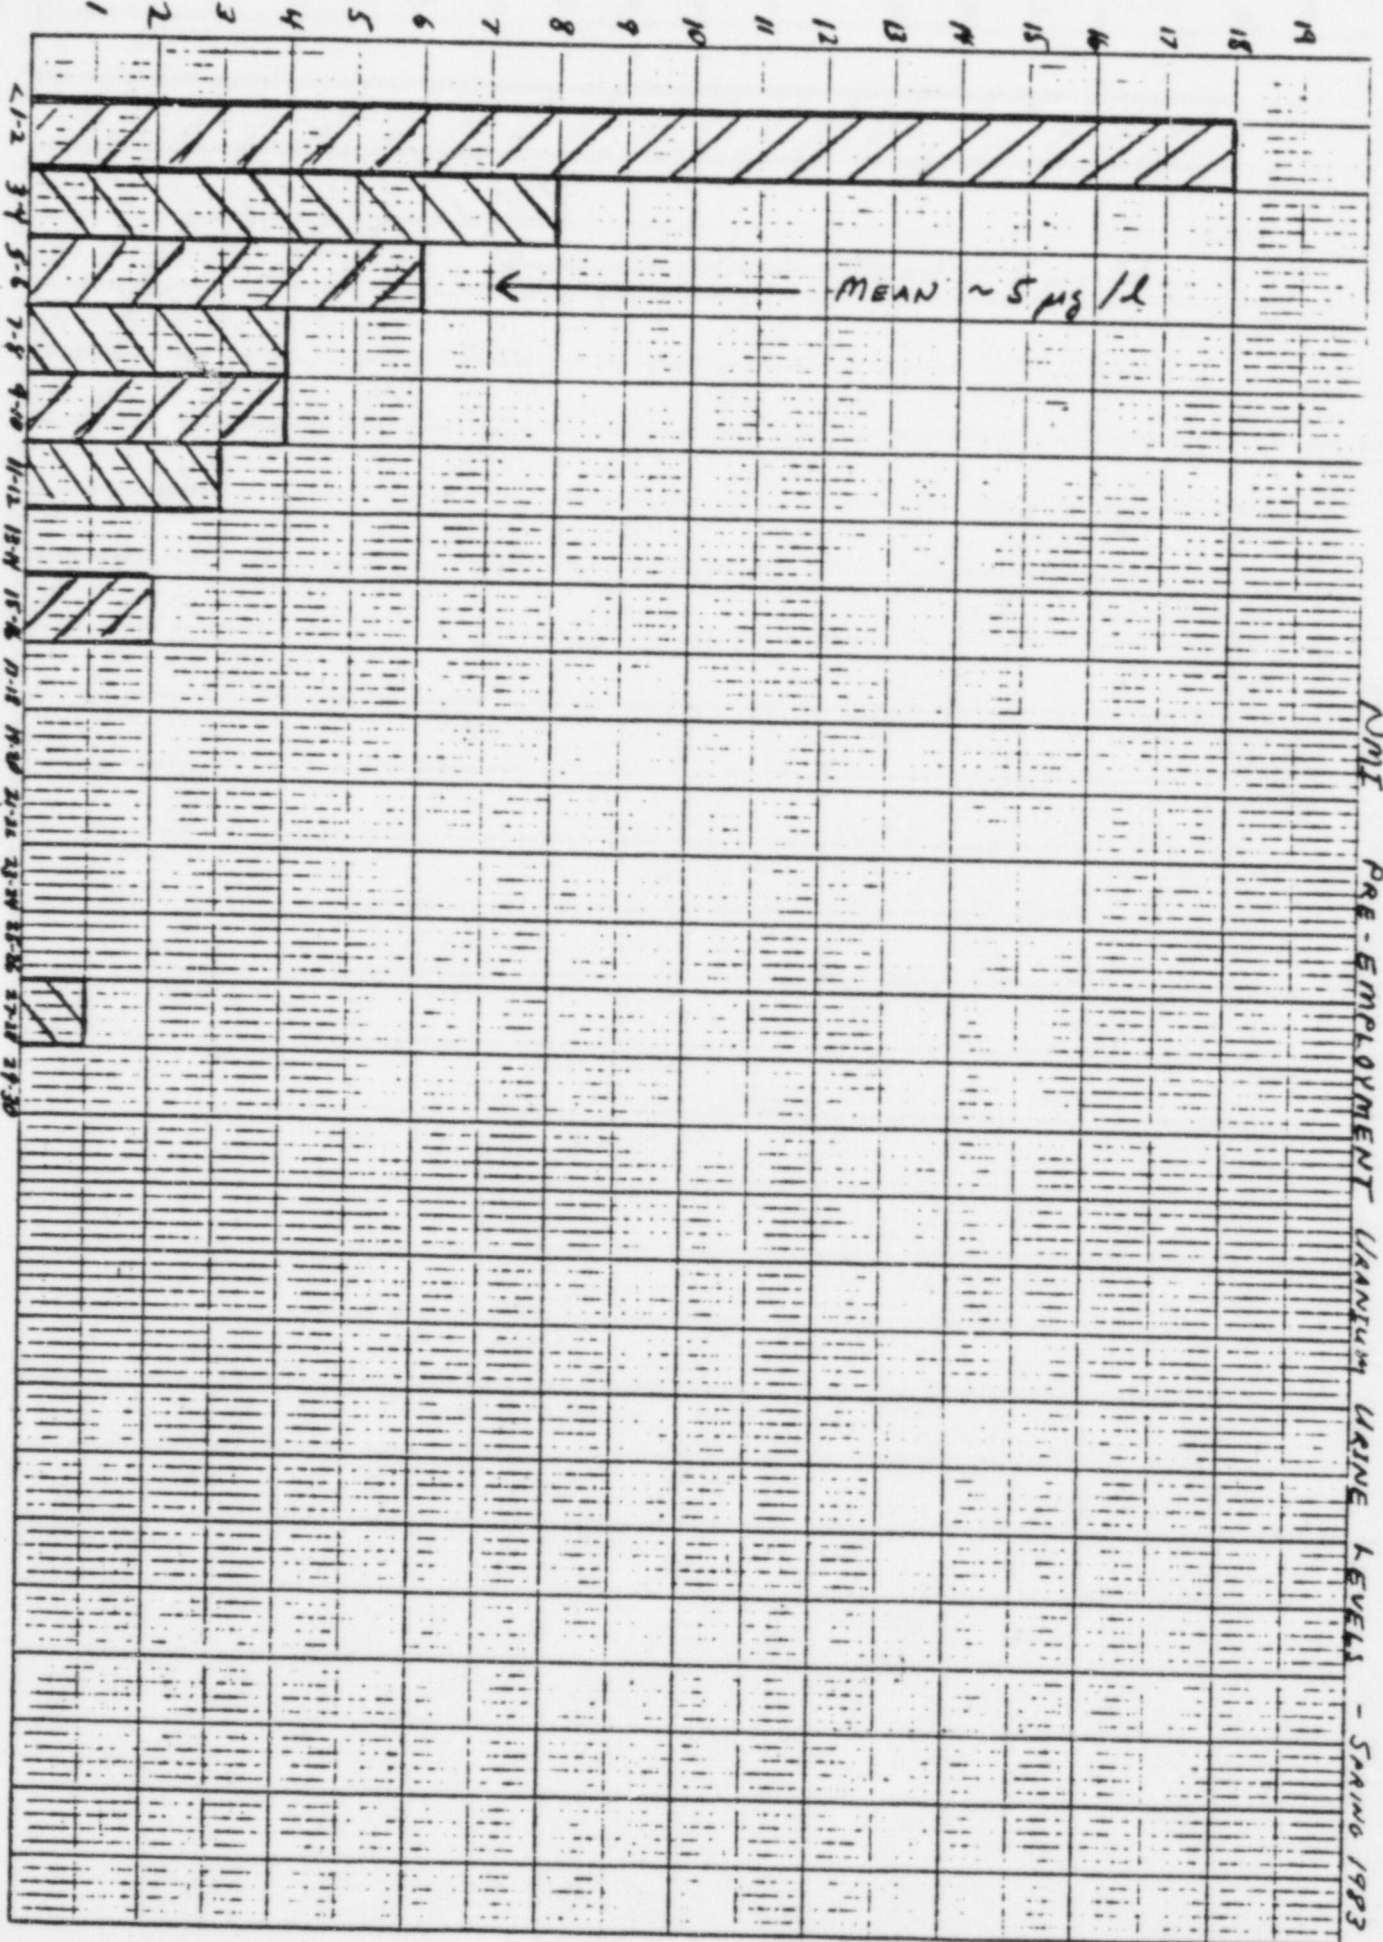 NMI PRE-EMPLOYMENT URANIUM URINE LEVELS - SPRING 1983
19
18
17
16
15
14
13
12
11
10
9
8
7
6
5
4
3
2
1
MEAN ~ 5 µg/l
<1-2 3-4 5-6 7-8 9-10 11-12 13-14 15-16 17-18 19-20 21-22 23-24 25-26 27-28 29-30